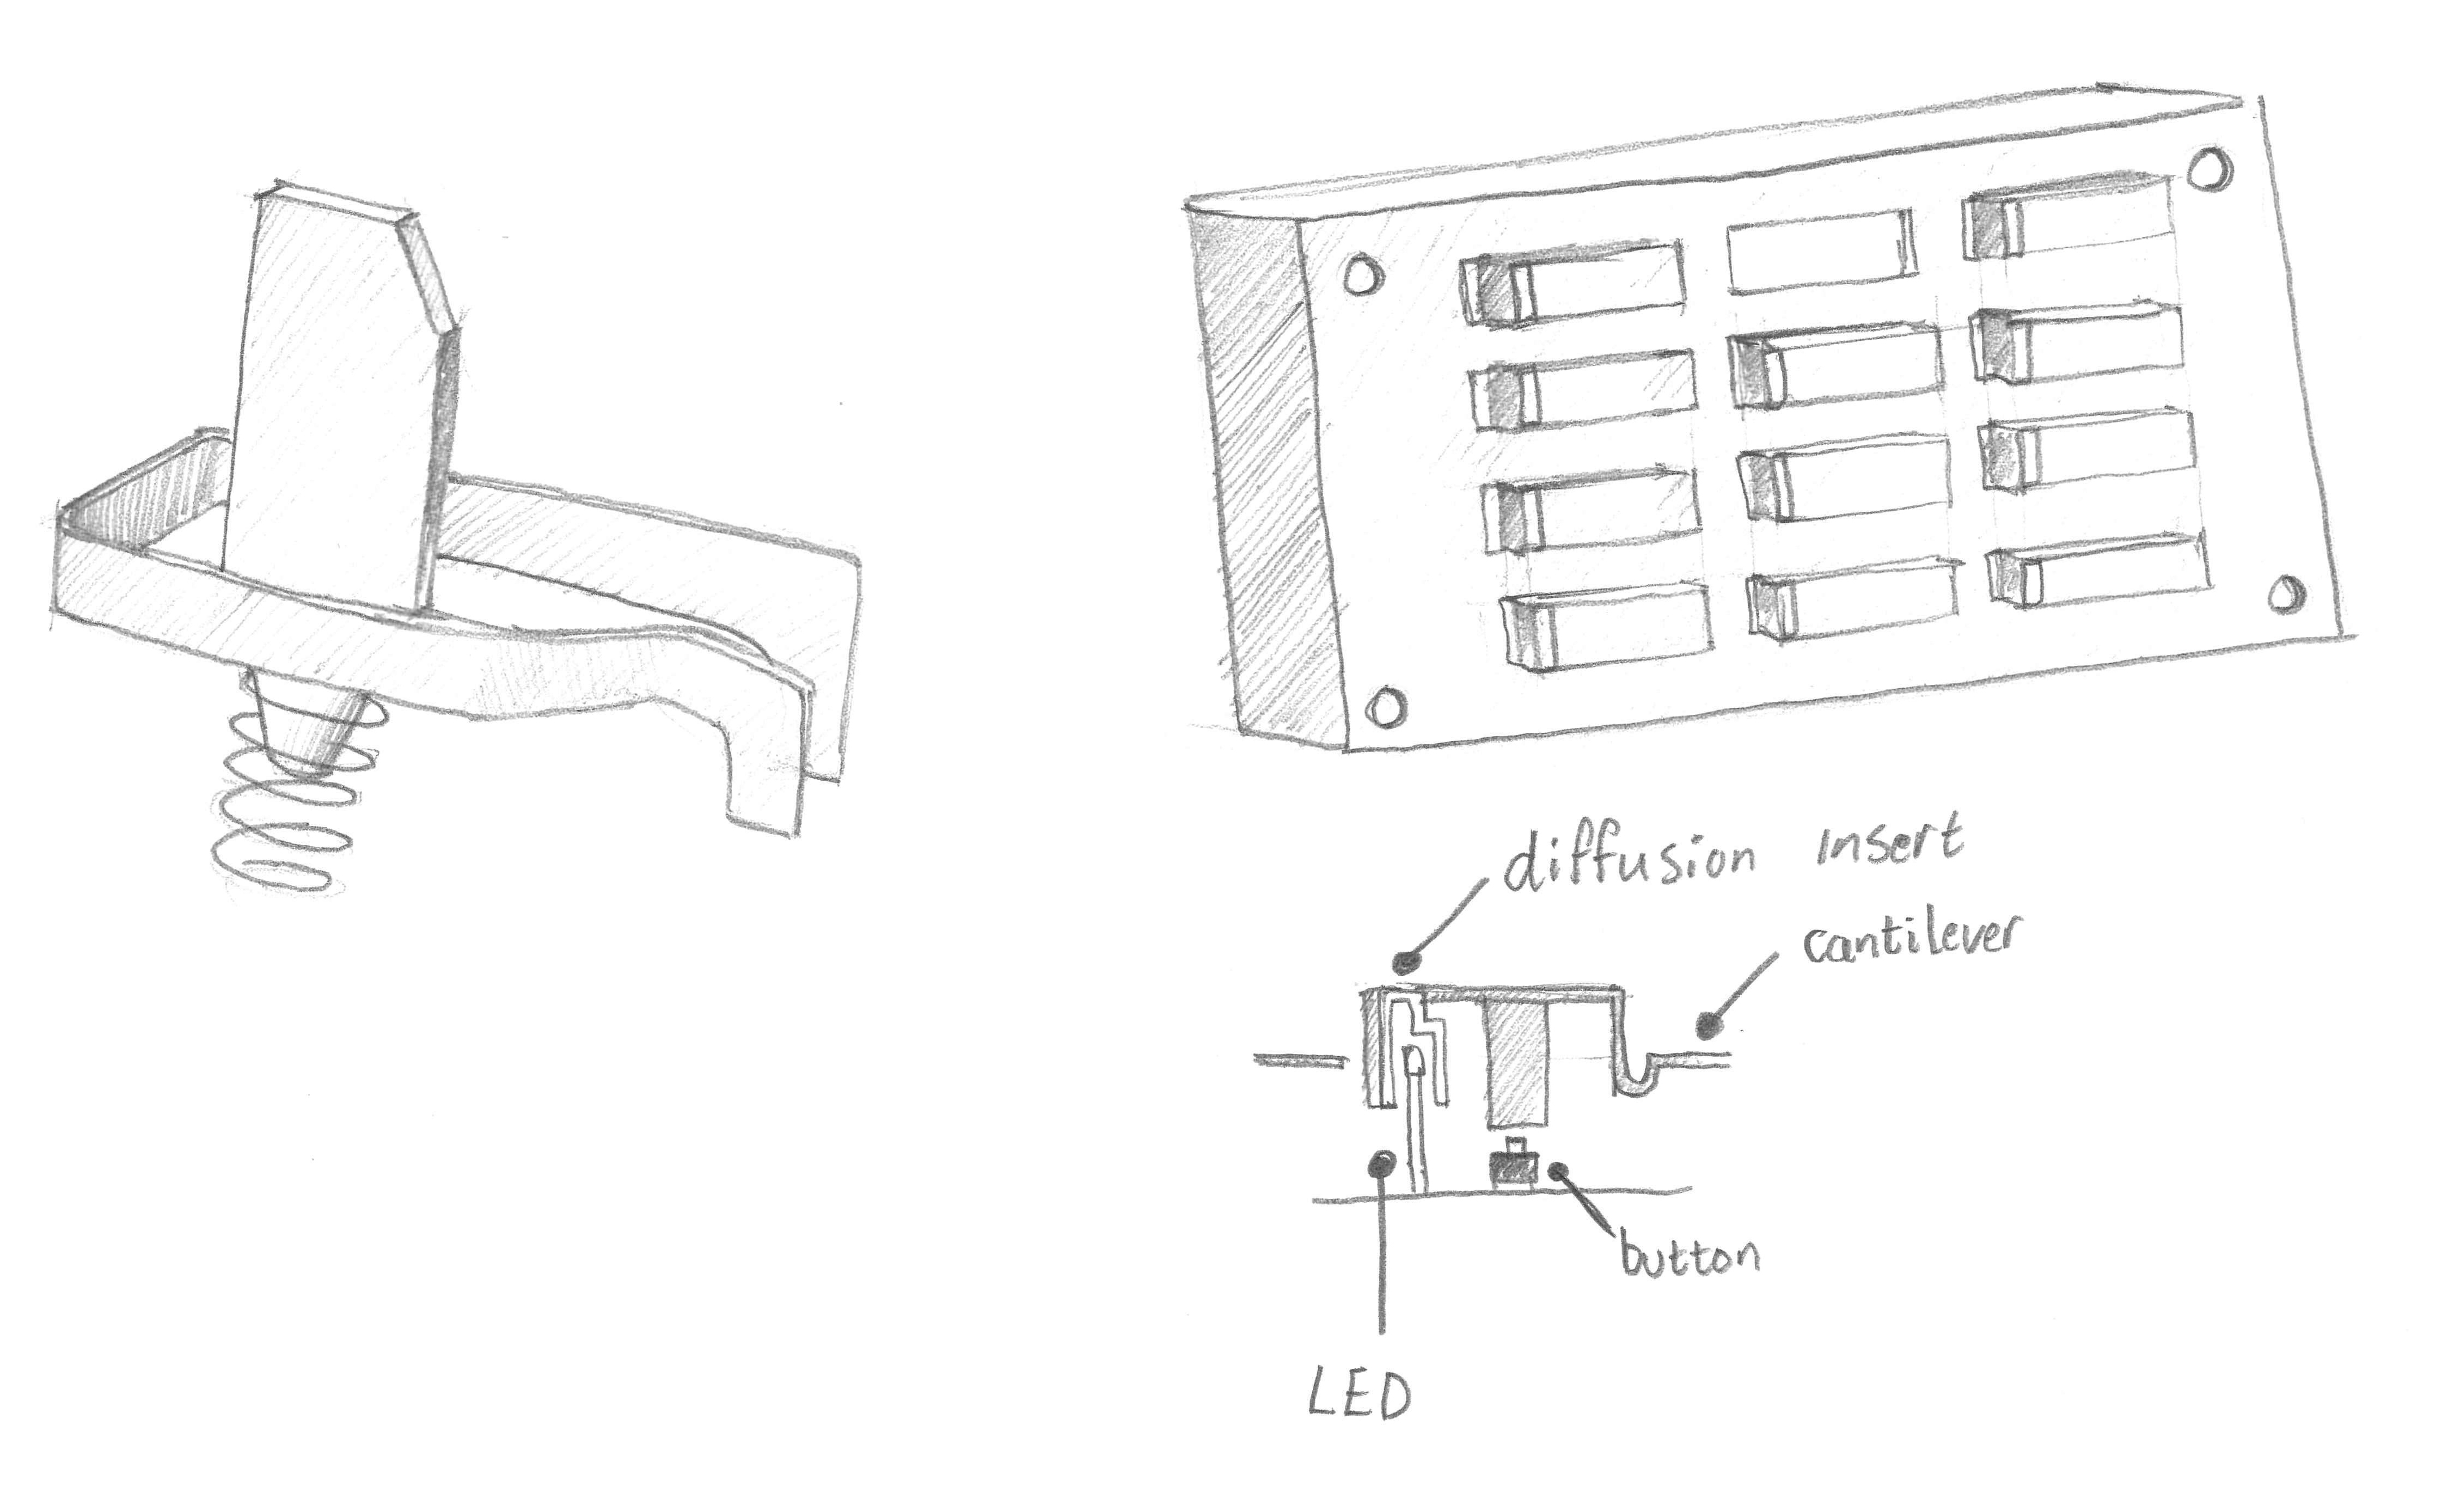 diffusion insert
cantilever
button
LED